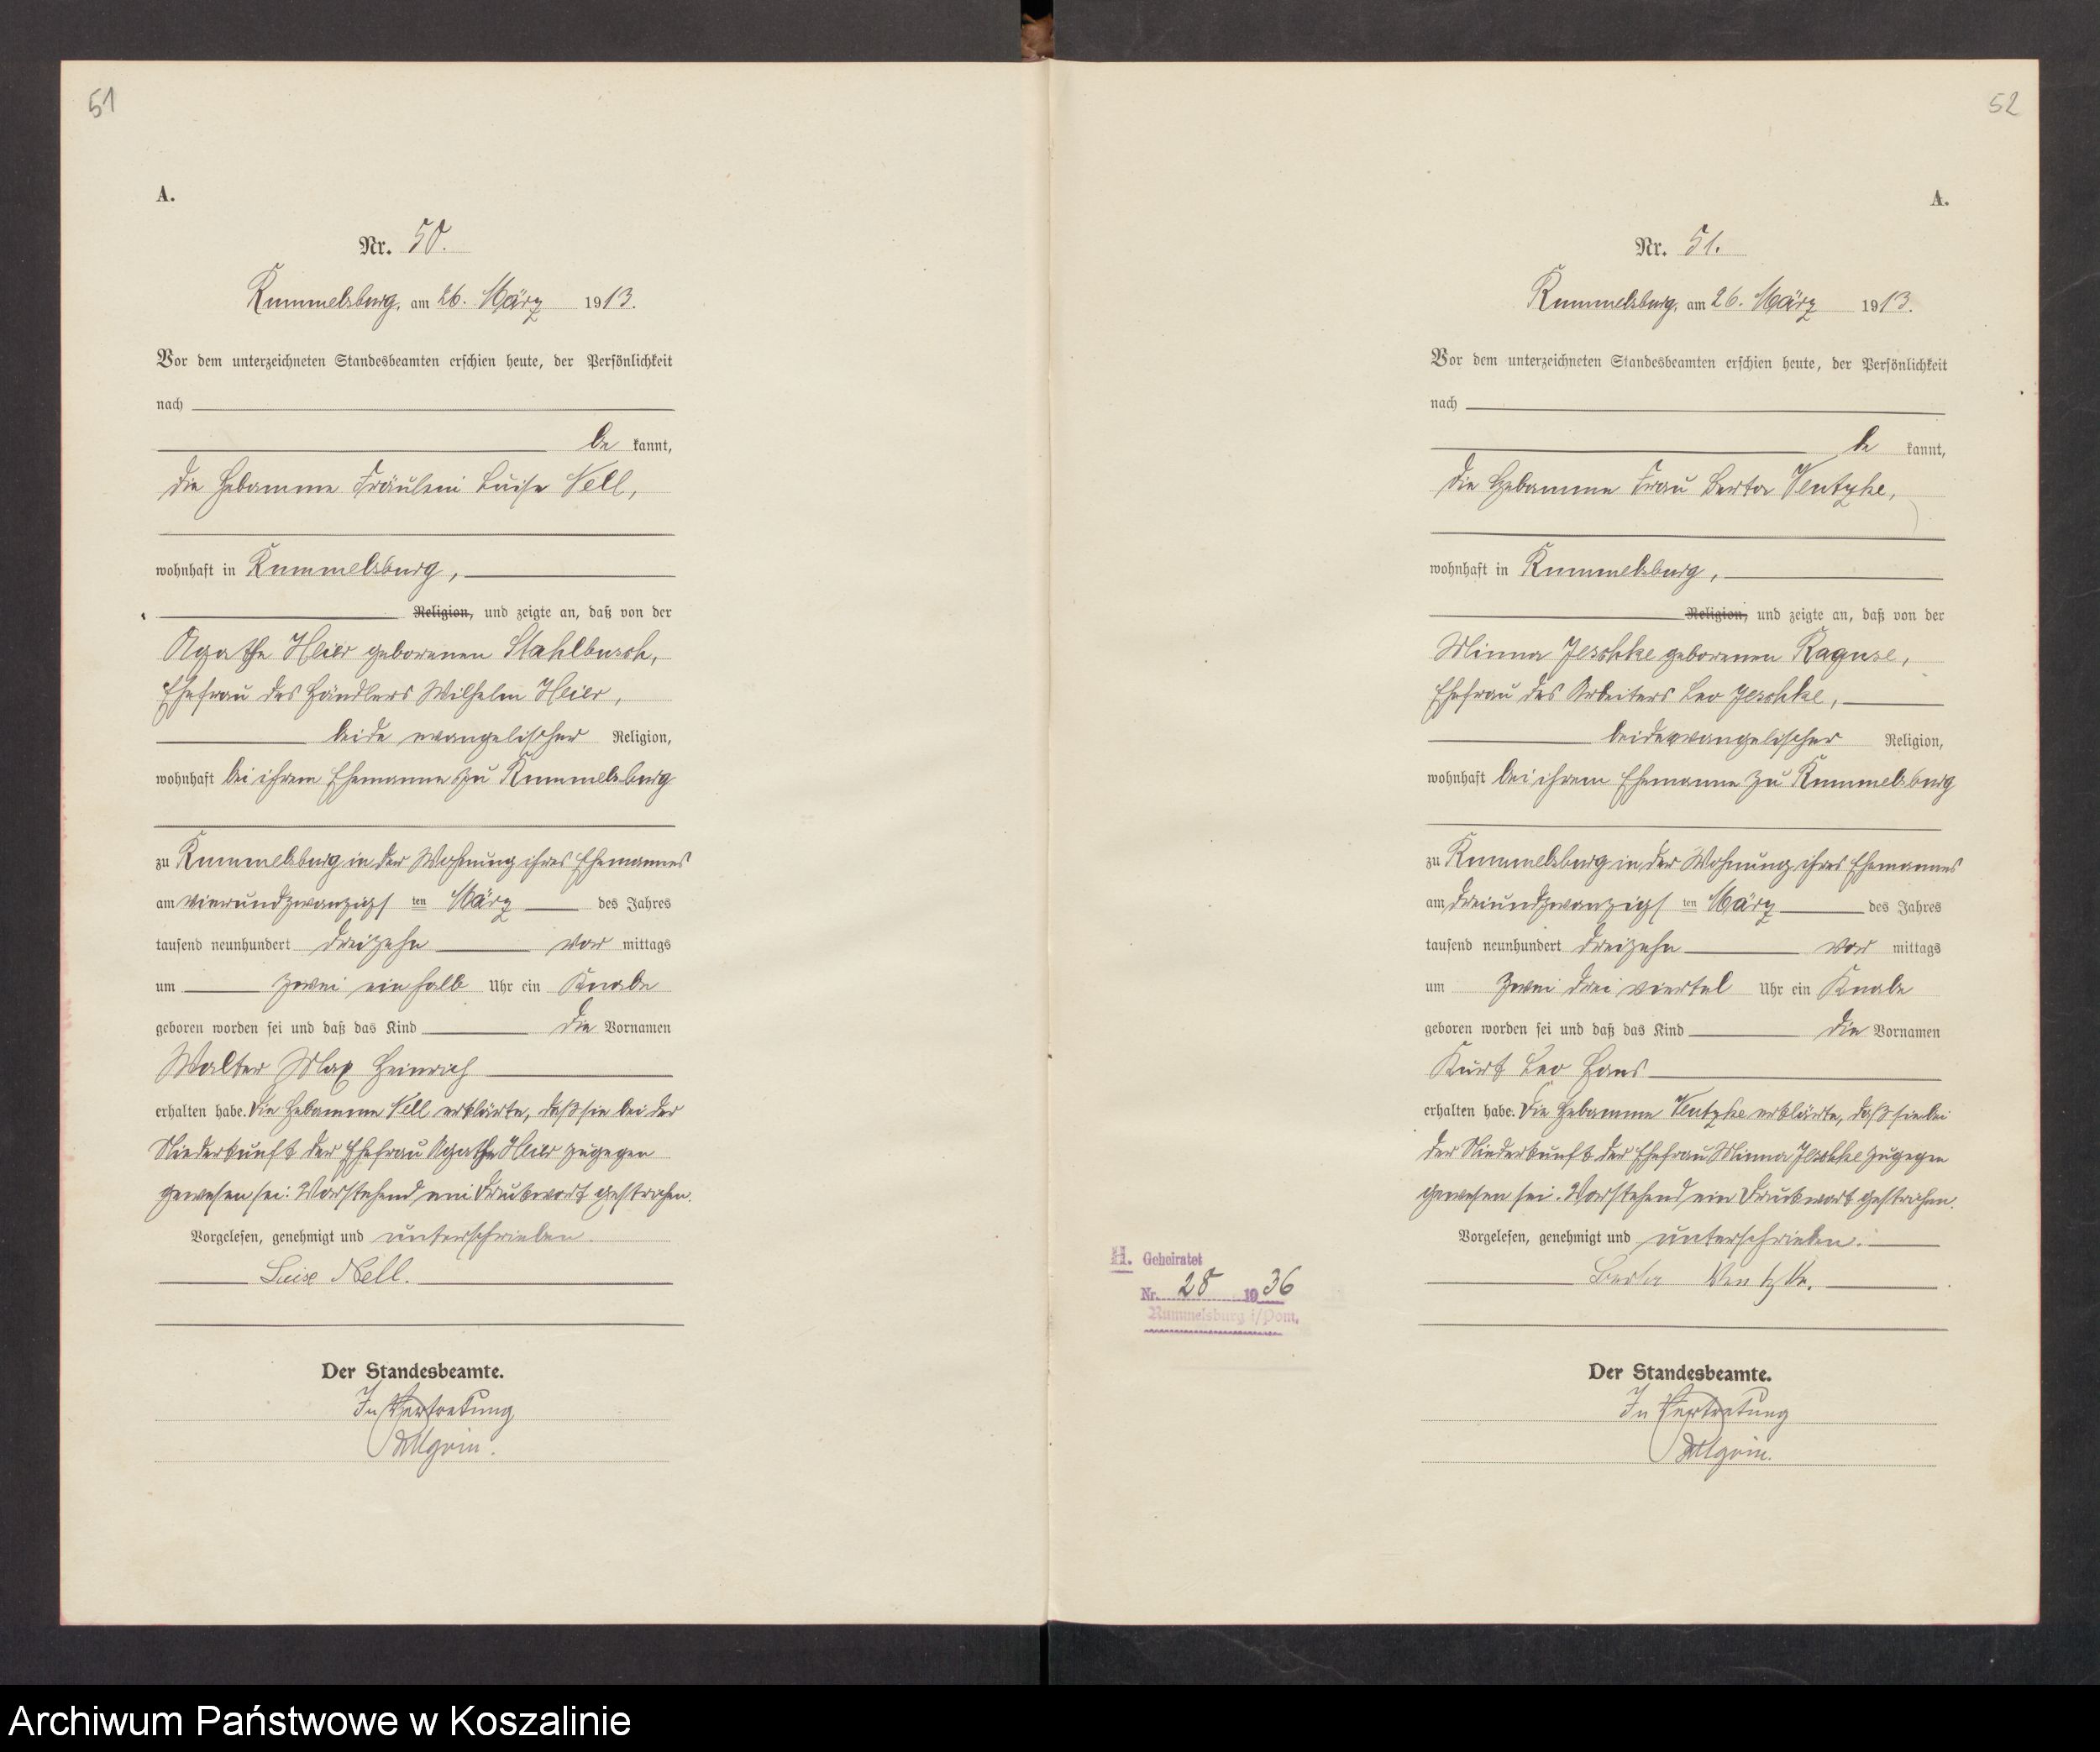 51
A.
Nr. 50.
Rummelsburg, am 26. März 1913.
Vor dem unterzeichneten Standesbeamten erschien heute, der Persönlichkeit
nach
be kannt,
die Hebamme Fräulein Luise Nell,
wohnhaft in Rummelsburg,
Religion, und zeigte an, daß von der
Agathe Heier geborenen Stahlbusch,
Ehefrau des Händlers Wilhelm Heier,
beide evangelischer Religion,
wohnhaft bei ihrem Ehemanne zu Rummelsburg
zu Rummelsburg in der Wohnung ihres Ehemannes
am vierundzwanzigs ten März des Jahres
tausend neunhundert dreizehn vor mittags
um zwei ein halb Uhr ein Knabe
geboren worden sei und daß das Kind die Vornamen
Walter Max Heinrich
erhalten habe. Die Hebamme Nell erklärte, daß sie bei der
Niederkunft der Ehefrau Agathe Heier zugegen
gewesen sei. Vorstehend ein Druckwort gestrichen.
Vorgelesen, genehmigt und unterschrieben.
Luise Nell.
Der Standesbeamte.
In Vertretung
52
A.
Nr. 51.
Rummelsburg, am 26. März 1913.
Vor dem unterzeichneten Standesbeamten erschien heute, der Persönlichkeit
nach
be kannt,
die Hebamme Frau Berta Ventzke,
wohnhaft in Rummelsburg,
Religion, und zeigte an, daß von der
Minna Jeschke geborenen Raguse,
Ehefrau des Arbeiters Leo Jeschke,
beide evangelischer Religion,
wohnhaft bei ihrem Ehemanne zu Rummelsburg
zu Rummelsburg in der Wohnung ihres Ehemannes
am dreiundzwanzigs ten März des Jahres
tausend neunhundert dreizehn vor mittags
um zwei drei viertel Uhr ein Knabe
geboren worden sei und daß das Kind die Vornamen
Kurt Leo Hans
erhalten habe. Die Hebamme Ventzke erklärte, daß sie bei
der Niederkunft der Ehefrau Minna Jeschke zugegen
gewesen sei. Vorstehend ein Druckwort gestrichen.
Vorgelesen, genehmigt und unterschrieben.
Berta Ventzke.
Der Standesbeamte.
In Vertretung
H. Geheiratet
Nr. 28 1936
Rummelsburg i/Pom.
Archiwum Państwowe w Koszalinie